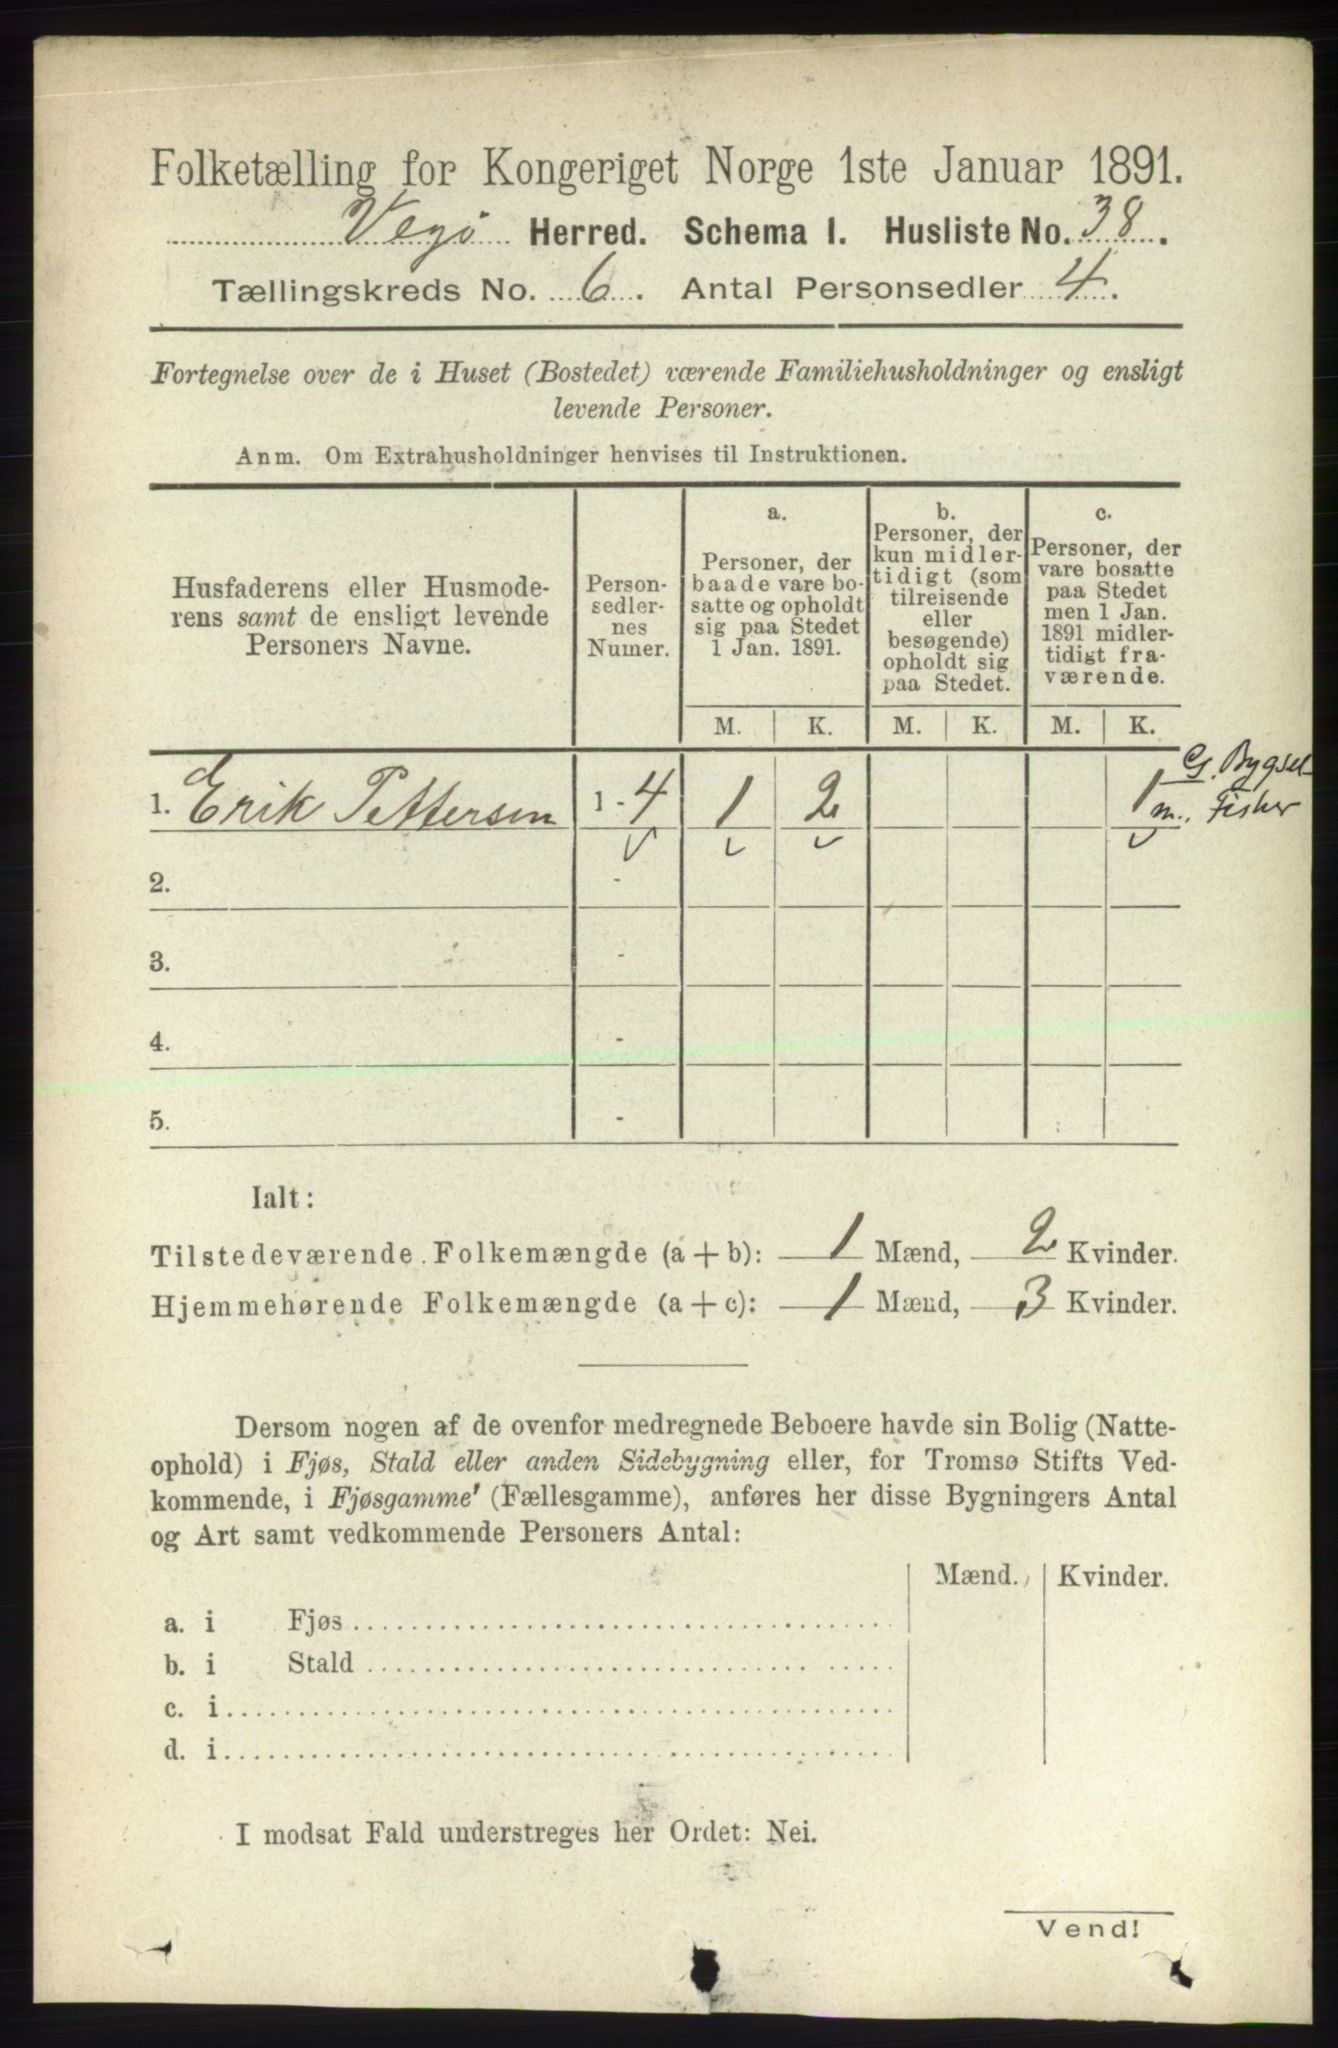 Folketælling for Kongeriget Norge 1ste Januar 1891.
Vegø Herred. Schema I. Husliste No. 38.
Tællingskreds No. 6. Antal Personsedler 4.
Fortegnelse over de i Huset (Bostedet) værende Familiehusholdninger og ensligt
levende Personer.
Anm. Om Extrahusholdninger henvises til Instruktionen.
Husfaderens eller Husmode-
rens samt de ensligt levende
Personers Navne.
Person-
sedler-
nes
Numer.
a.
Personer, der
baade vare bo-
satte og opholdt
sig paa Stedet
1 Jan. 1891.
b.
Personer, der
kun midler-
tidigt (som
tilreisende
eller
besøgende)
opholdt sig
paa Stedet.
c.
Personer, der
vare bosatte
paa Stedet
men 1 Jan.
1891 midler-
tidigt fra-
værende.
M. K. M. K. M. K.
G. Bygsel
1. Erik Pettersen 1 - 4 1 2 1 m. Fisker
2. -
3. -
4. -
5. -
Ialt:
Tilstedeværende Folkemængde (a + b): 1 Mænd, 2 Kvinder.
Hjemmehørende Folkemængde (a + c): 1 Mænd, 3 Kvinder.
Dersom nogen af de ovenfor medregnede Beboere havde sin Bolig (Natte-
ophold) i Fjøs, Stald eller anden Sidebygning eller, for Tromsø Stifts Ved-
kommende, i Fjøsgamme (Fællesgamme), anføres her disse Bygningers Antal
og Art samt vedkommende Personers Antal:
Mænd. Kvinder.
a. i Fjøs
b. i Stald
c. i
d. i
I modsat Fald understreges her Ordet: Nei.
Vend!